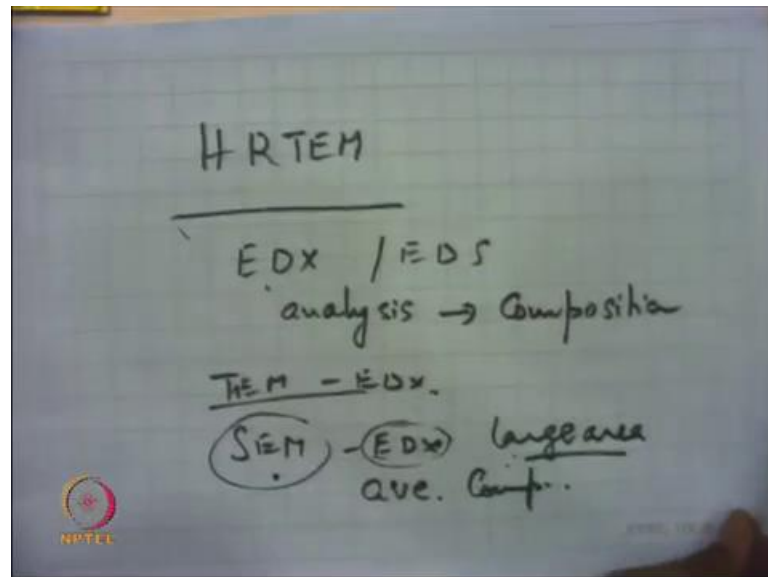 HRTEM
EDX / EDS
analysis → Composition
TEM - EDX.
SEM - EDX large area
ave. Comp.
NPTEL